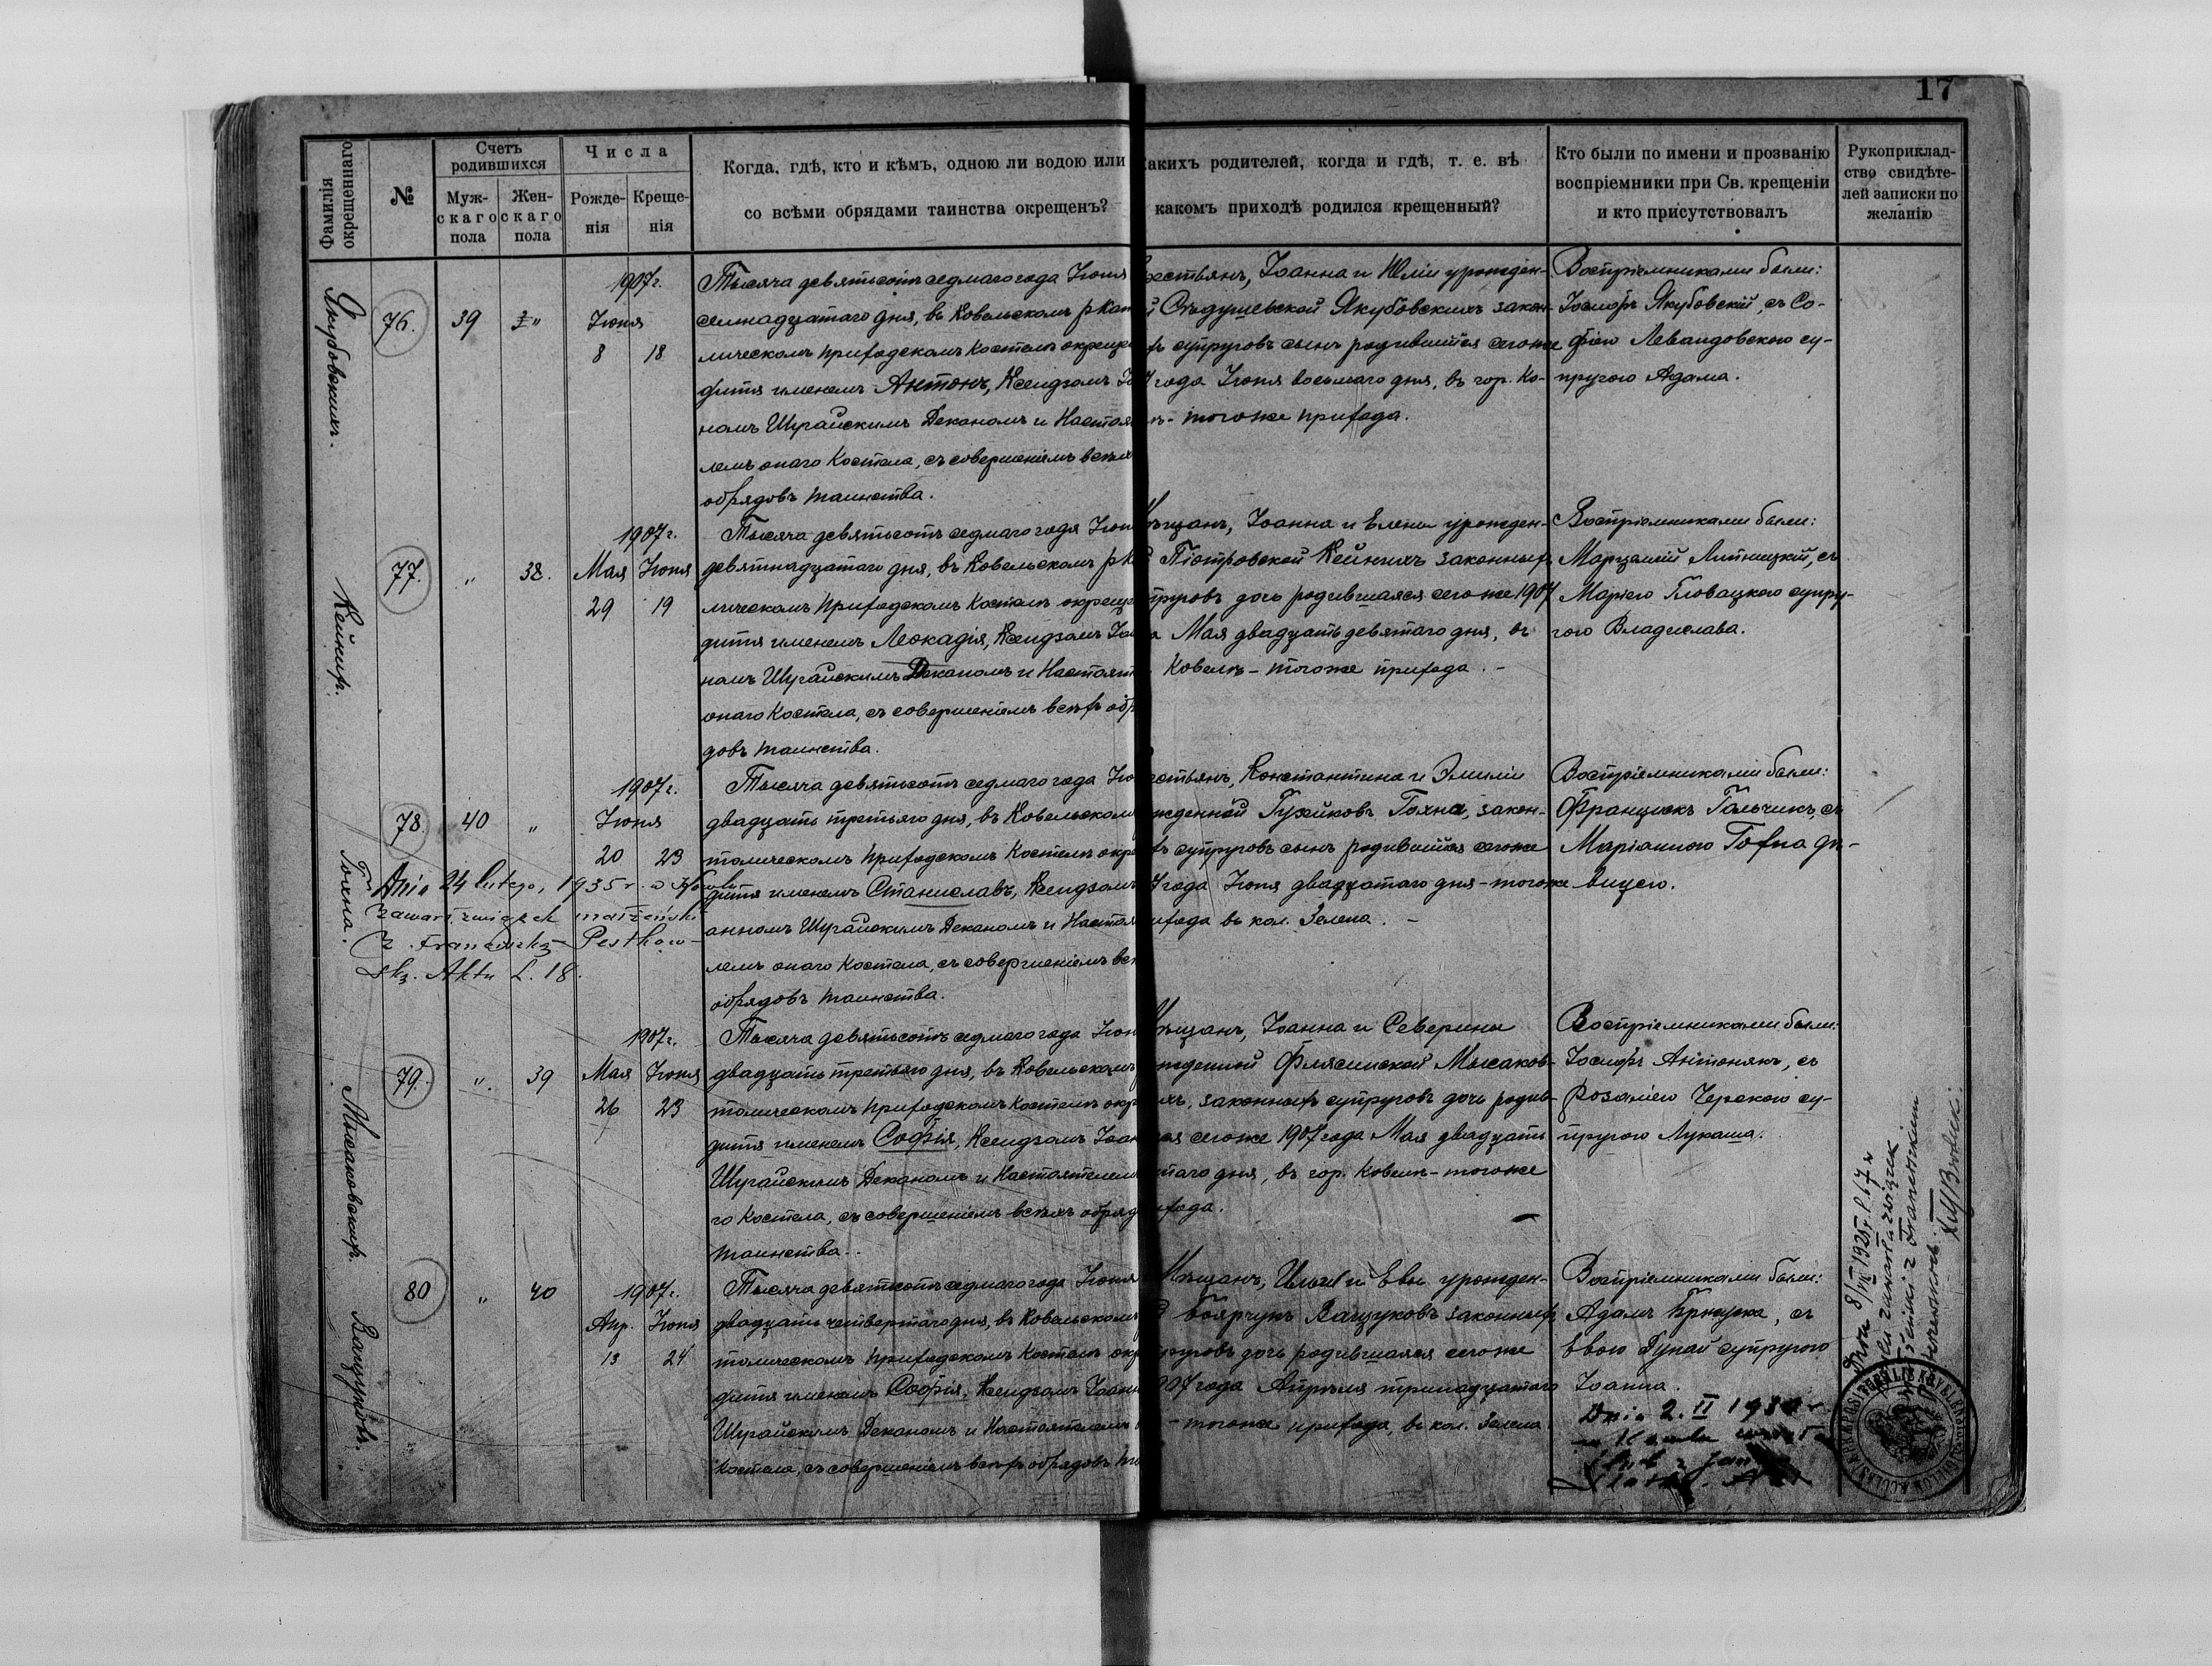 17
Фамилія окрещеннаго
№
Счетъ родившихся
Муж-скаго пола
Жен-скаго пола
Числа
Рожде-нія
Креще-нія
Когда, гдѣ, кто и кѣмъ, одною ли водою или
со всѣми обрядами таинства окрещенъ?
какихъ родителей, когда и гдѣ, т. е. въ
какомъ приходѣ родился крещенный?
Кто были по имени и прозванію
воспріемники при Св. крещеніи
и кто присутствовалъ
Рукоприклад-
ство свидѣте-
лей записки по
желанію
Якубовскихъ.
76.
39
"
1907 г.
Іюня
8 18
Тысяча девятьсотъ седмаго года Іюня
семнадцатаго дня, въ Ковельскомъ р Кат
лическомъ приходскомъ Костелѣ окреще
дитя именемъ Антонъ, Ксендзомъ Іо
номъ Шурайскимъ Деканомъ и Настоя
лемъ онаго Костела, съ совершеніемъ всѣхъ
обрядовъ таинства.
крестьянъ, Іоанна и Юліи урожден-
Якубовскихъ закон-
супруговъ сынъ родившійся сегоже
года Іюня восьмаго дня, въ гор. Ко-
тогоже прихода.
Воспріемниками были:
Іосифъ Якубовскій, съ Со-
фіею Левандовскою су-
пругою Адама.
Кейнихъ.
77.
"
38.
1907 г.
Мая Іюня
29 19
Тысяча девятьсотъ седмаго года Іюн
девятнадцатаго дня, въ Ковельскомъ р К
лическомъ приходскомъ Костелѣ окреще
дитя именемъ Леокадія, Ксендзомъ Іоа
номъ Шурайскимъ Деканомъ и Настоят
онаго Костела, съ совершеніемъ всѣхъ обр
довъ таинства.
мѣщанъ, Іоанна и Елены урожден-
Піотровской Кейнихъ законныхъ
супруговъ дочь родившаяся сегоже 1907
Мая двадцать девятаго дня, въ
Ковелѣ - тогоже прихода. -
Воспріемниками были:
Марцелій Липницкій, съ
Маріею Гловацкою супру-
гою Владислава.
Гохна.
78.
40
"
1907 г.
Іюня
20 23
Тысяча девятьсотъ седмаго года Ію
двадцать третьяго дня, въ Ковельскомъ
толическомъ приходскомъ Костелѣ окре
дитя именемъ Станиславъ, Ксендзомъ
анномъ Шурайскимъ Деканомъ и Настоя
лемъ онаго Костела, съ совершеніемъ вс
обрядовъ таинства.
крестьянъ, Константина и Эмиліи
Гохна, закон-
супруговъ сынъ родившійся сегоже
года Іюня двадцатаго дня - тогоже
прихода въ кол. Зелена. -
Воспріемниками были:
Францискъ Гальчикъ, съ
Маріанною Гохна дѣ-
вицею.
Dnia 24 lutego, 1935 r. w Kowlu
zawarł związek małżeński
z Franciszką Pestkow-
ską. Aktu L. 18.
Мысаковскихъ.
79.
"
39
1907 г.
Мая Іюня
26 23
Тысяча девятьсотъ седмаго года Іюн
двадцать третьяго дня, въ Ковельскомъ
толическомъ приходскомъ Костелѣ окр
дитя именемъ Софія, Ксендзомъ Іоан
Шурайскимъ Деканомъ и Настоятелем
го Костела, съ совершеніемъ всѣхъ обряд
таинства.
мѣщанъ, Іоанна и Северины
Мысаков-
законныхъ супруговъ дочь родив-
сегоже 1907 года Мая двадцать
дня, въ гор. Ковелѣ - тогоже
прихода.
Воспріемниками были:
Іосифъ Антонякъ, съ
Розаліею Черскою су-
пругою Лукаша.
Ващуковъ.
80
"
40
1907 г.
Апр. Іюня
13 24
Тысяча девятьсотъ седмаго года Іюня
двадцать четвертаго дня, въ Ковельскомъ
толическомъ приходскомъ Костелѣ окр
дитя именемъ Софія, Ксендзомъ Іоанн
Шурайскимъ Деканомъ и Настоятелемъ
Костела, съ совершеніемъ всѣхъ обрядовъ та
мѣщанъ, Ильи и Евы урожден-
Боярчукъ Ващуковъ законныхъ
супруговъ дочь родившаяся сегоже
1907 года Апрѣля тринадцатаго
- тогоже прихода, въ кол. Зелена.
Воспріемниками были:
Адамъ съ
Евою Дунай супругою
Іоанна.
Dnia 2. II
Dnia 8/VII 1925 r. L. 67 w
związek
z Franciszkiem